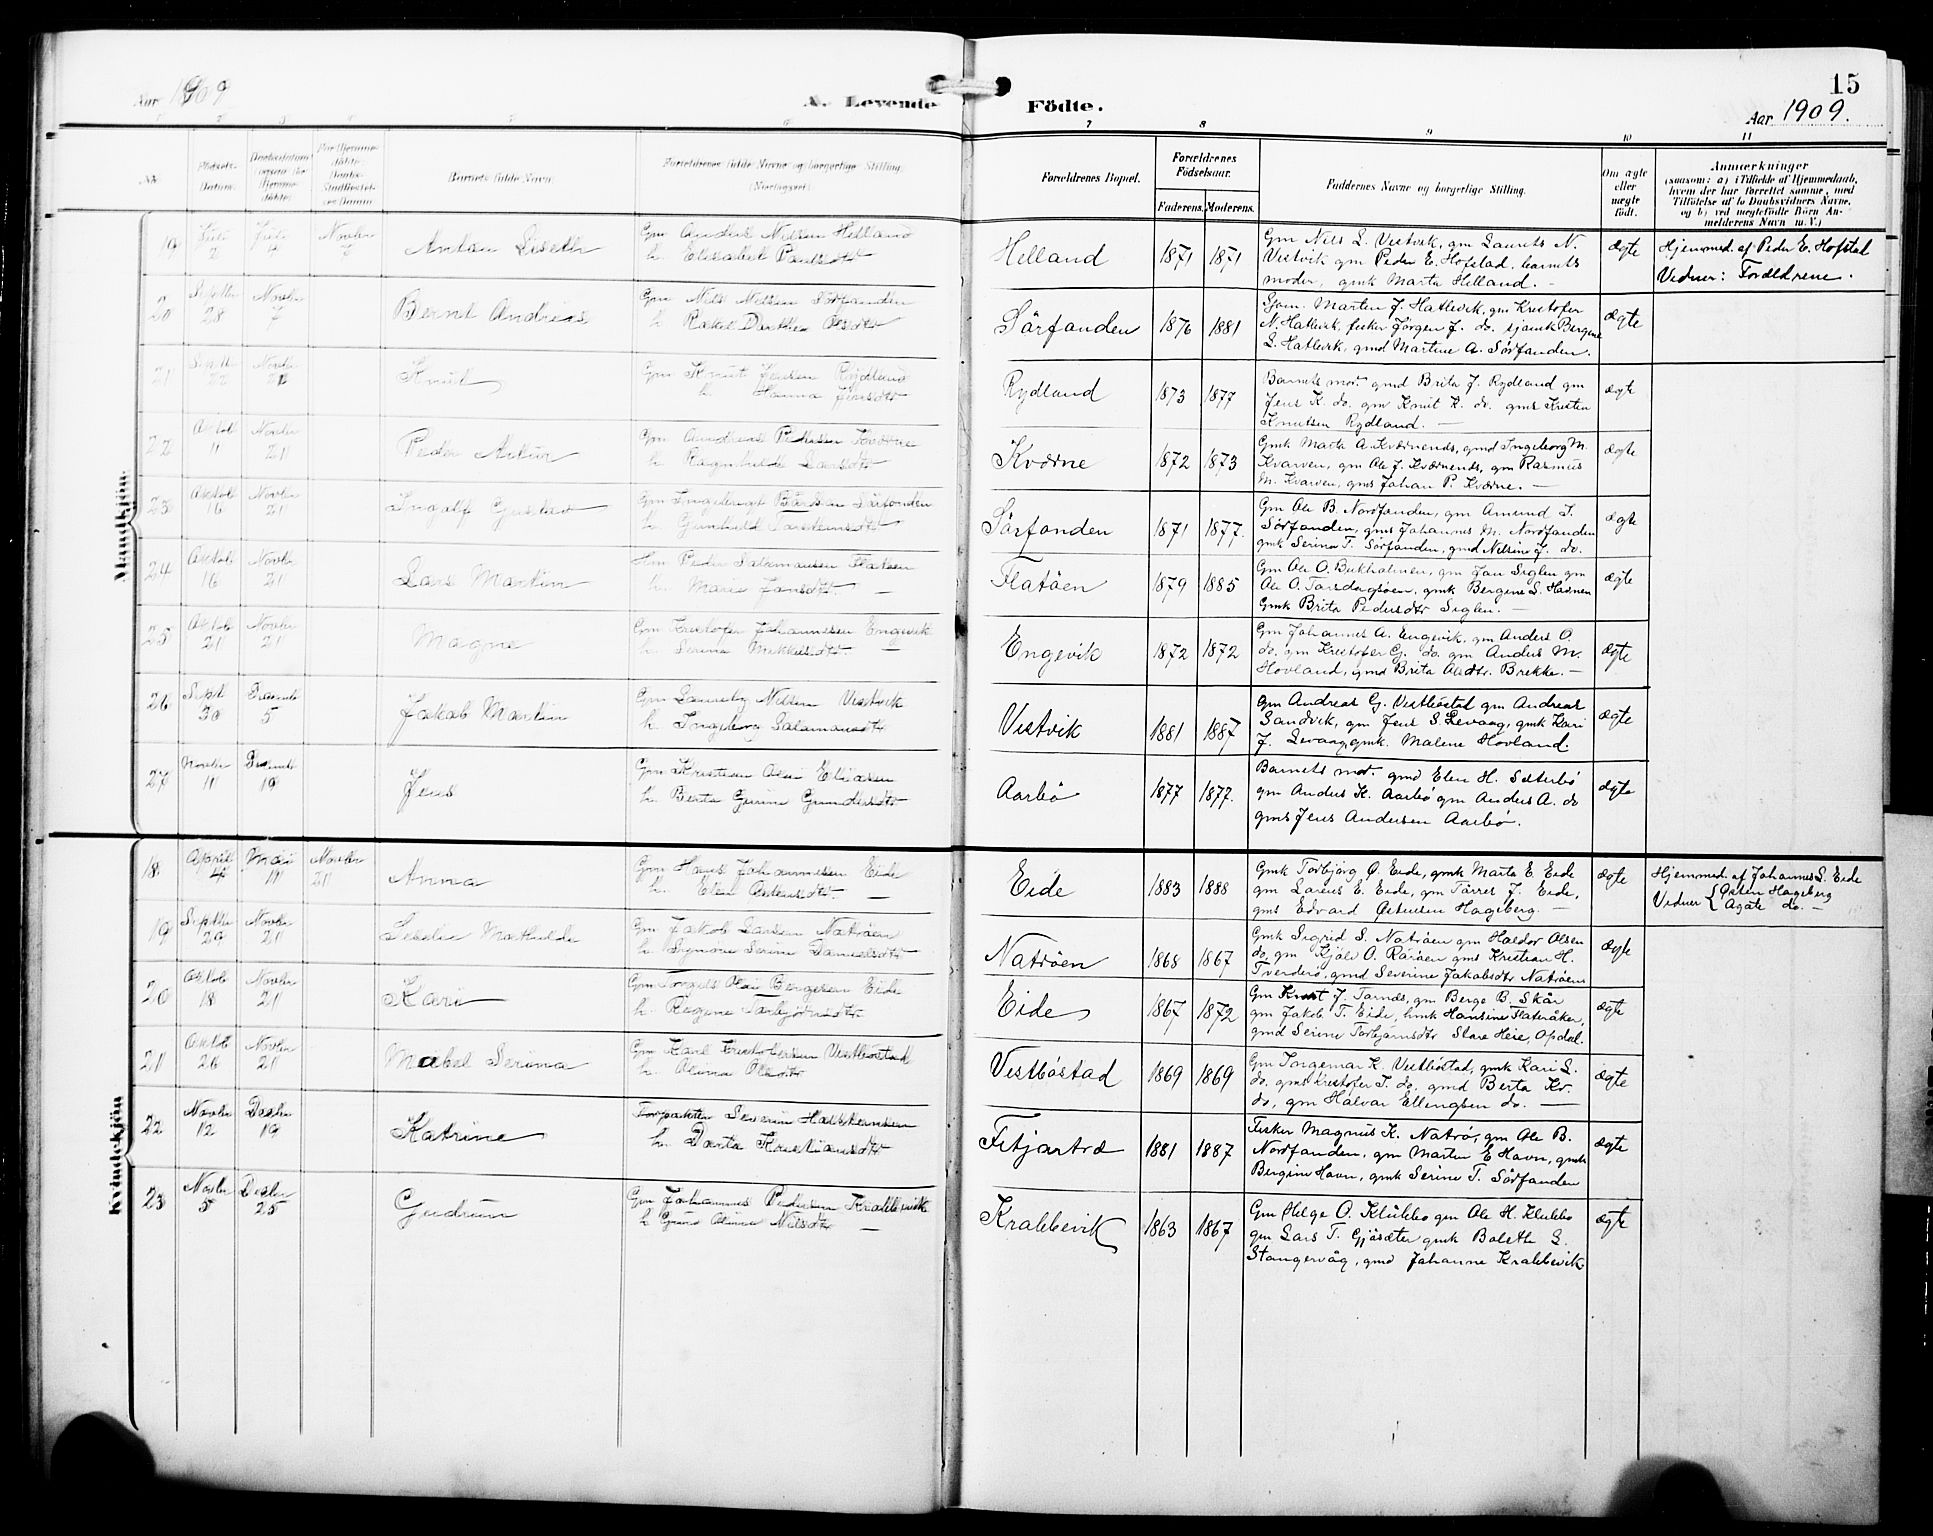 Aar 1909
A. Levende
Födte.
15
Aar 1909.
1 2 3 4 5 6 7 8 9 10 11
No.
Födsels-
Datum.
Barnets fulde Navn.
Forældrenes fulde Navne og borgerlige Stilling.
Forældrenes Bopæl.
Forældrenes
Födselsaar.
Faderens. Moderens.
Faddernes Navne og borgerlige Stilling.
Om ægte
eller
uægte
födt.
Anmærkninger
(saasom: a) i Tilfælde af Hjemmedaab,
hvem der har forrettet samme, med
Tilföielse af to Daabsvidners Navne,
og b) ved uægtefödte Börn An-
melderens Navn m. V.)
Mandkjön.
19 Juli 2 Juli 4 Novbr 7
Anton Leseth
Gm Anders Nilsen Helland
h. Elisabet Paulsdtr
Helland 1871 1871
Gm Nils L. Vestvik, gm Laurits N.
Vestvik gm Peder E. Hofstad, barnets
moder, gmk Marta Helland. —
ægte
Hjemmed. af Peder E. Hofstad
Vidner: Forældrene.
20 Septbr 28 Novbr 7
Bernt Andreas
Gm Nils Nilsen Sörfonden
h. Rakel Dorthea Olsdtr
Sörfonden 1876 1881
N. Hatlevik, fisker Jörgen J. do.
L. Hatlevik, gmd Martine A. Sörfonden.
ægte
21 Septbr 22 Novbr 21
Knut
Gm Knut Jensen Rydland
h. Hanna Jensdtr
Rydland 1873 1877
Barnets mor. gmd Brita J. Rydland gm
Jens K. do. gm Knut K. do. gms Kristen
Knutsen Rydland. —
ægte
22 Oktob 11 Novbr 21
Peder Artur
Gm Andreas Pedersen Kværne
h. Ragnhilde Larsdtr
Kværne 1872 1873
Gmk Marta A. Kværnends, gmd Ingeborg M.
Kvarven, gm Ole J. Kværnends, gm Rasmus
M. Kvarven, gms Johan P. Kværne. —
ægte
23 Oktob 16 Novbr 21
Ingolf Gustav
Gm Ingebrigt Bårdsen Sörfonden
h. Gunhild Torsteinsdtr
Sörfonden 1871 1877.
Gm Ole B. Nordfonden, gm Amund I.
Sörfonden, gms Johannes M. Nordfonden
gmk Serina T. Sörfonden, gmd Nilsine J. do.
ægte
24 Oktob 16 Novbr 21
Lars Martin
Peder Salamonsen Flatöen
h. Marie Jansdtr. —
Flatöen 1879 1885
Gm Ole O. Bukholmen, gm Jan Siglen gm
Ole O. Torsdagsöen, gmk Bergine S. Havnen
Gmk Brita Pedersdtr Siglen. —
ægte
25 Oktob 21 Novbr 21
Magne
Gm Kristofer Johannesen Engevik
h. Serina Mikkelsdtr. —
Engevik 1872 1872
Gm Johannes A. Engevik, gm Anders O.
do, gm Kristofer G. do. gm Anders M.
Hovland, gmd Brita Brekke. —
ægte
26 Septb 30 Decemb 5
Jakob Martin
Gm Nilsen Vestvik
h. Ingeborg Salamonsdtr
Vestvik 1881 1887
gm Andreas G. Vestböstad gm Andreas
Sandvik, gm Jens S. Levaag, gmk Kari
J. Levaag, gmk. Malene Hovland.
ægte
27 Novbr 11 Decemb 19
Jens
Gm Kristian Olai Eliasen
h. Berta Gurine Gundersdtr
Aarbö 1877 1877.
Barnets mor. gmd Elen H. Sæterbö
gm Anders K. Aarbö gm Anders A. do
gms Jens Andersen Aarbö.
ægte
Kvindekjön
18 April 4 Mai 11 Novbr 21
Anna
Gm Hans Johannesen Eide
h. Elen Östensdtr —
Eide 1883 1888
Gmk Torbjörg Ø. Eide, gmk Marta E. Eide
gm Lareus E. Eide, gm Törres J. Eide,
gms Edvard Østensen Hageberg. —
ægte
Hjemmed. af Johannes S. Eide
Vidner { Østen Hageberg
Agate do. —
19 Septbr 29 Novbr 21
Mathilde
Gm Jakob Larsen Naträen
h. Signora Serine Danielsdtr
Naträen 1868 1867
Gmk Sigrid S. Naträen gm Haldor Olsen
do, gm Kjöle O. Räräen gms Kristian H.
Tverderö, gmd Severine Jakobsdtr Naträen
ægte
20 Oktob 18 Novbr 21
Kari
Gm Torgils Olai Bergesen Eide
h. Regine Torbjörnsdtr
Eide 1867 1872
Gm Knut J. Tornæs, gm Berge B. Skår
gm Jakob T. Eide, hmk Hansine Flateråker,
gmd Serine Torbjörnsdtr Store Heie, Opdal.
ægte
21 Oktob 26 Novbr 21
Mabel Serina
Gm Karl Kristofersen Vestböstad
h. Olina Olsdtr
Vestböstad 1869 1869
Gm Ingemar K. Vestböstad, gmk Kari L.
do, gms Kristofer T. do, gmd Berta Kr.
do, gm Halvar Ellingsen do. —
ægte
22 Novbr 12 Decbr 19
Katrine
Severin
h. Dorta Kristiansdtr
Fitjartræ 1881 1887
Fisker Magnus K. Naträ, gm Ole B.
Nordfonden, gm Marten E Havn, gmk
Bergine Havn, gmk Serine T. Sörfonden
ægte
23 Novbr 5 Decbr 25
Gudrun
Gm Johannes Pedersen Krabbevik
h Guro Olina Nilsdtr —
Krabbevik 1863 1867
Gm Helge O. Klubbo gm Ole H. Klubbo
gm Lars T. Gjösæter gmk Bolette L.
Stangervåg, gmd Johanne Krabbevik
ægte